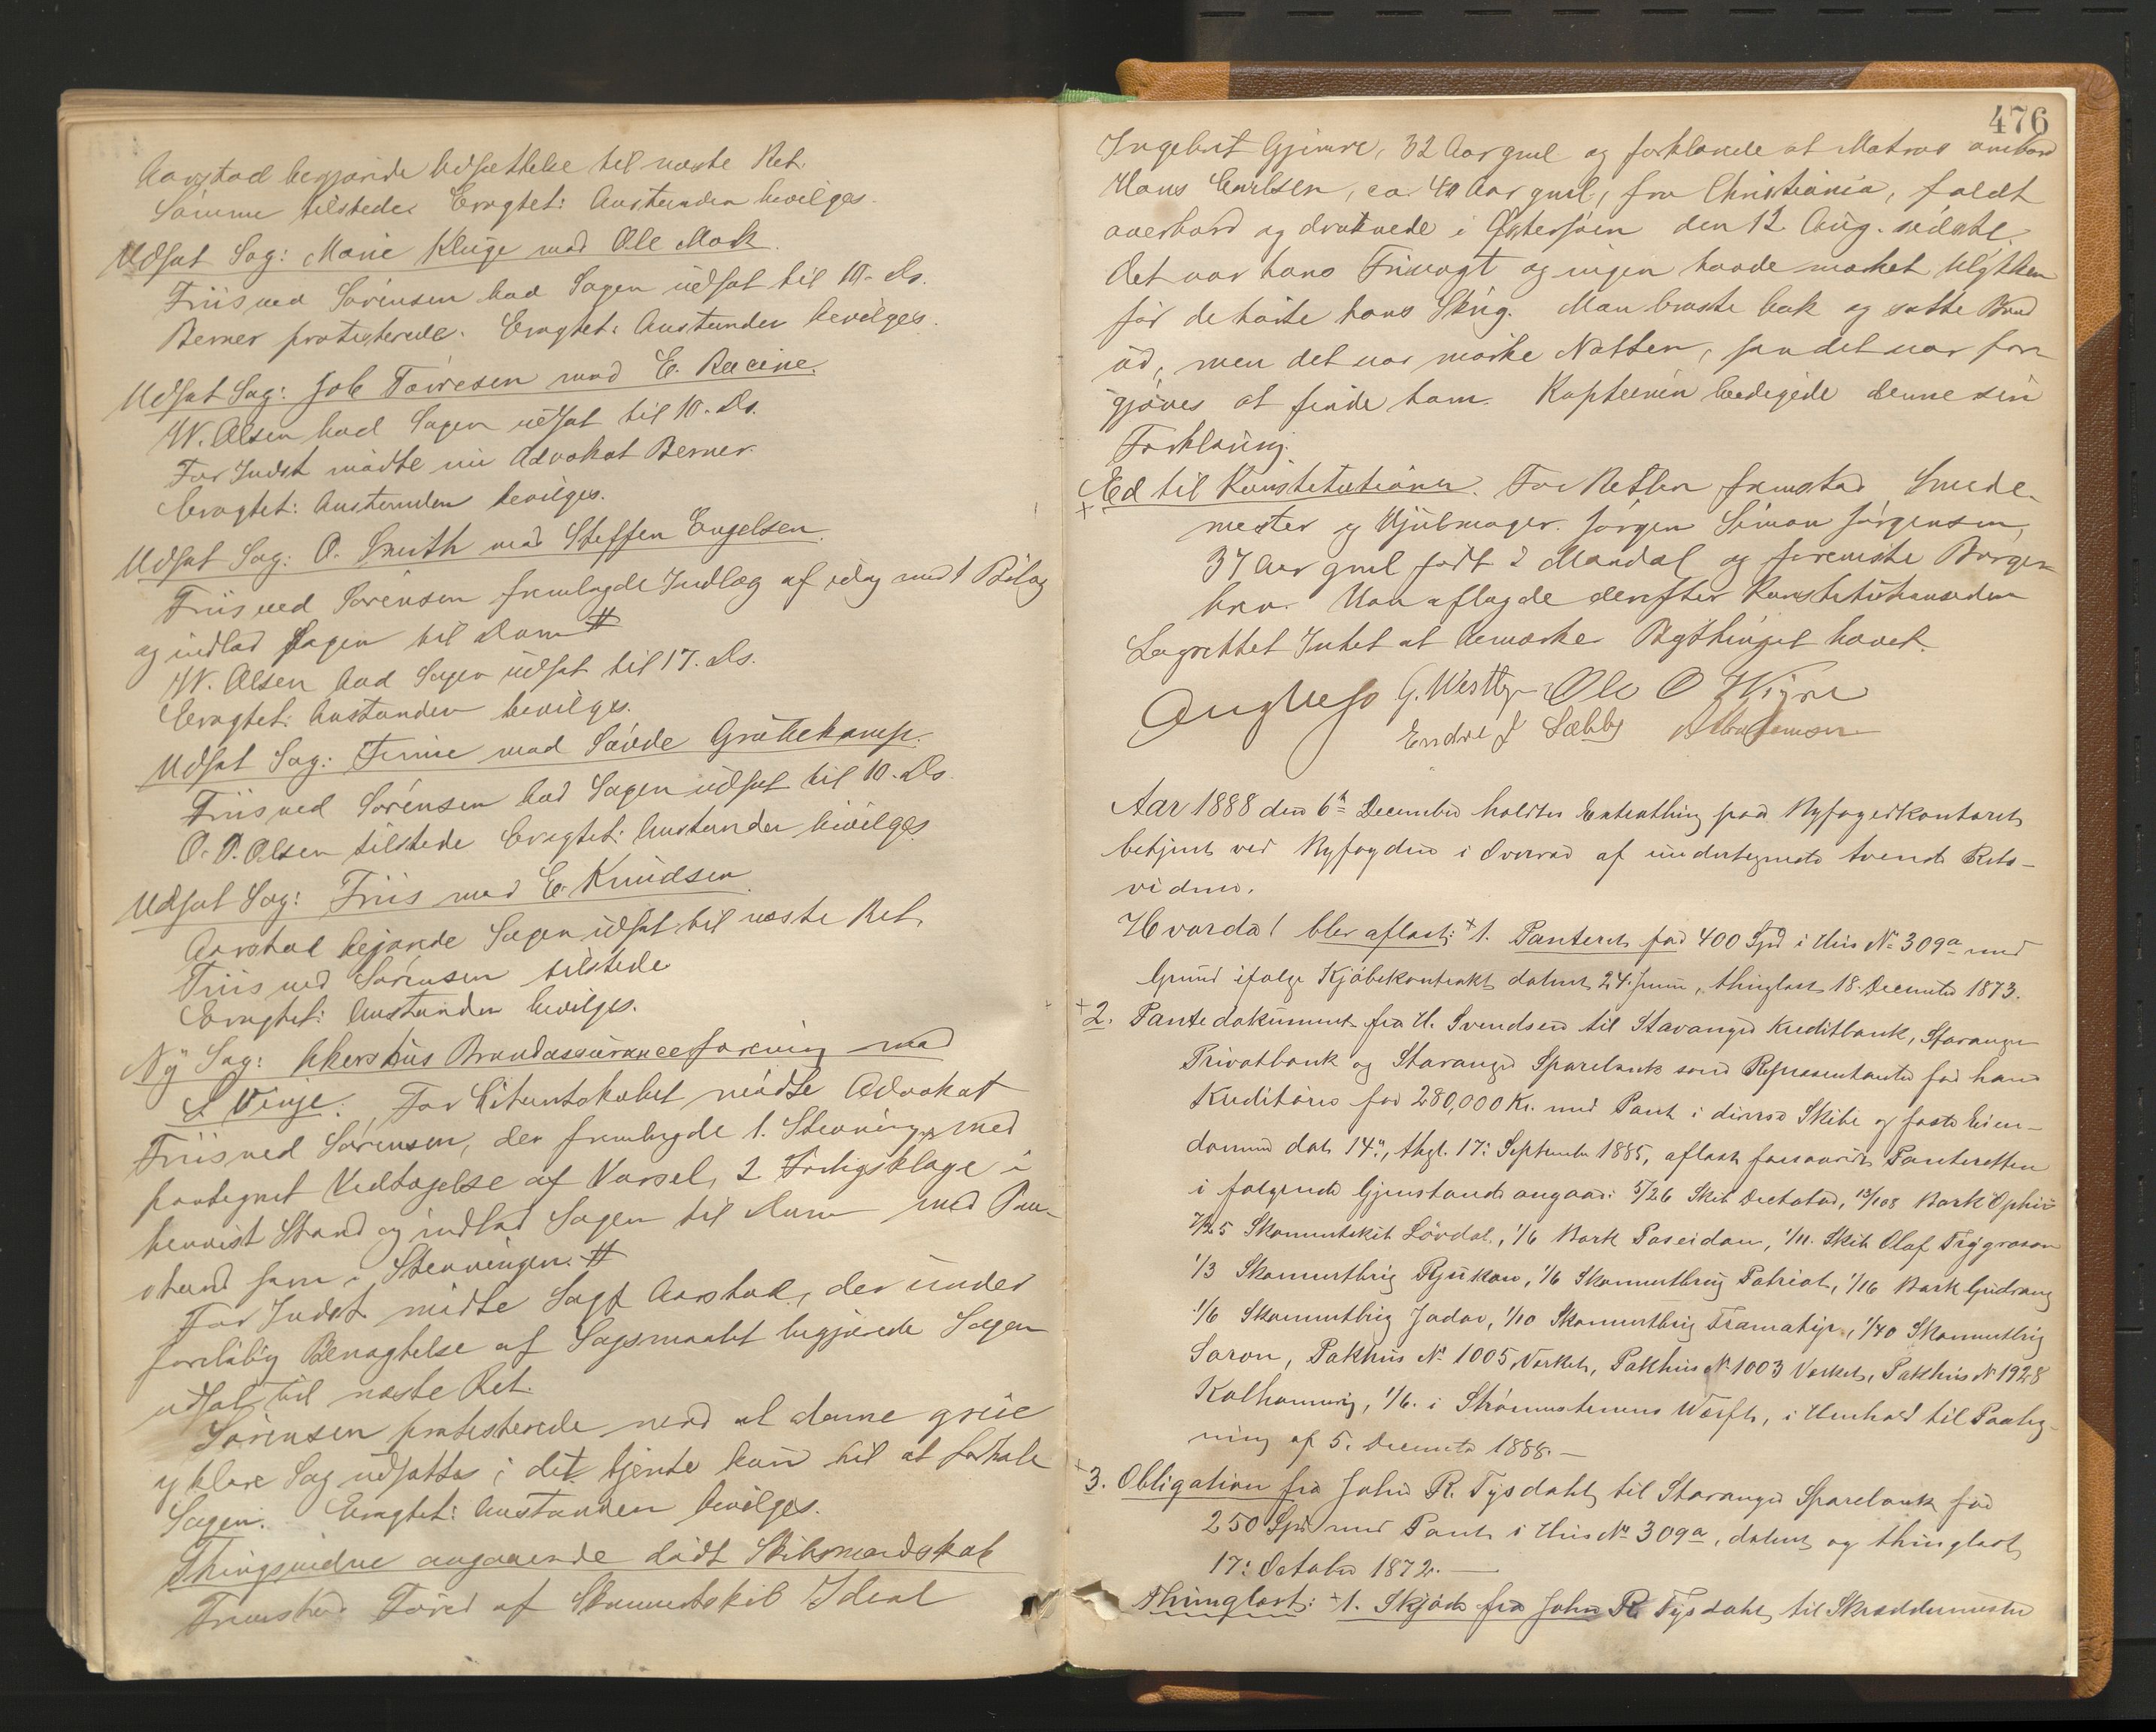 Aarstad begjærede Udsættelse til næste Ret.
Sømme tilstede. Eragtet: Anstanden bevilges.
Udsat Sag: Marie Kluge mod Ole Mok.
Friis ved Sørensen bad Sagen udsat til 10. ds.
Berner protesterede. Eragtet: Anstanden bevilges.
Udsat Sag: Job Tørresen mod E. Racine.
W. Olsen bad Sagen udsat til 10. ds.
For Indst mødte nu Advokat Berner.
Eragtet: Anstanden bevilges.
Udsat Sag: O. Smith mod Steffen Engelsen.
Friis ved Sørensen fremlagde Indlæg af idag med 1 Bilag
og indlod Sagen til Dom #
W. Olsen bad Sagen udsat til 17. ds.
Eragtet: Anstanden bevilges.
Udsat Sag: mod
Friis ved Sørensen bad Sagen udsat til 10. ds.
O. P. Olsen tilstede Eragtet: Anstanden bevilges
Udsat Sag: Friis mod E. Knudsen
Aarstad begjærede Sagen udsat til næste Ret.
Friis ved Sørensen tilstede
Eragtet: Anstanden bevilges.
Ny Sag: Akershus Brandassuranceforening mod
S Vinje. For Citantskabet mødte Advokat
Friis ved Sørensen, der fremlagde 1. Stevning med
paategnet Vedtagelse af Varsel, 2 Forligsklage i
benvist Stand og indlod Sagen til Dom med Paa-
stand som i Stevningen. #
For Indst mødte Sagf Aarstad, der under
foreløbig Benægtelse af Søgsmaalet begjærede Sagen
udsat til næste Ret.
Sørensen protesterede mod at denne greie
og klare Sag udsattes; det tjente kun til at forhale
Sagen. Eragtet: Anstanden bevilges.
Thingsvidne angaaende dødt Skibsmandskab
Fremstod Fører af Skonnertskib Ideal
476
Ingebret Gjimre, 32 Aar gml og forklarede at Matros ombord
Hans Carlsen, ca. 40 Aar gml, fra Christiania, faldt
overbord og druknede i Østersøen den 12 Aug. sidste.
Det var hans Frivagt og ingen havde mærket Ulykken
før de hørte hans Skrig. Man braste bak og satte Baad
ud, men det var mørke Natten, saa det var for-
gjæves at finde ham. Kapteinen beedigede denne sin
Forklaring.
+ Ed til Konstitutionen. For Retten fremstod Smede-
mester og Hjulmager Jørgen Simon Jørgensen,
37 Aar gml født i Mandal og foreviste Borger-
brev. Han aflagde derefter Konstitutionseden
Lagrettet Intet at bemærke Bythinget hævet.
G. Westby Ole O
Endre J Sæbby
Aar 1888 den 6te December holdtes Extrathing paa Byfogedkontoret
betjent ved Byfogden i Overvær af undertegnede tvende Rets-
vidner.
Hvorda! blev aflæst: + 1. Panteret for 400 Spd i Hus No 309a med
Grund ifølge Kjøbekontrakt dateret 24. Juni, thinglæst 18. December 1873.
+ 2. Pantedokument fra H. Svendsen til Stavanger Kreditbank, Stavanger
Privatbank og Stavanger Sparebank som Repræsentanter for hans
Kreditorer for 280,000 Kr. med Pant i diverse Skibe og faste Eien-
domme dat. 14de, thgl. 17. September 1885, aflæst forsaavidt Panteretten
i følgende Gjenstande angaar: 5/26 Skib Dictator, 13/108 Bark Ophir
Skonnertskib Lövdal, 1/6 Bark Poseidon, 1/11. Skib Olaf Trygvason
1/3 Skonnertbrig Rjukan, 1/6 Skonnertbrig Patriot, 1/16 Bark Gudrang
1/6 Skonnertbrig Jadar, 1/10 Skonnertbrig, 1/40 Skonnertbrig
Saron, Pakhus No 1005 Verket, Pakhus No 1003 Verket, Pakhus No 1928
Kalhammeren, 1/6. i Strömstenens Værft, i Henhold til Paateg-
ning af 5. December 1888. —
+ 3. Obligation fra John R. Tysdahl til Stavanger Sparebank for
250 Spd med Pant i Hus No 309a, dateret og thinglæst
17. October 1872. —
Thinglæst: + 1. Skjøde fra John R. Tysdahl til Skræddermester